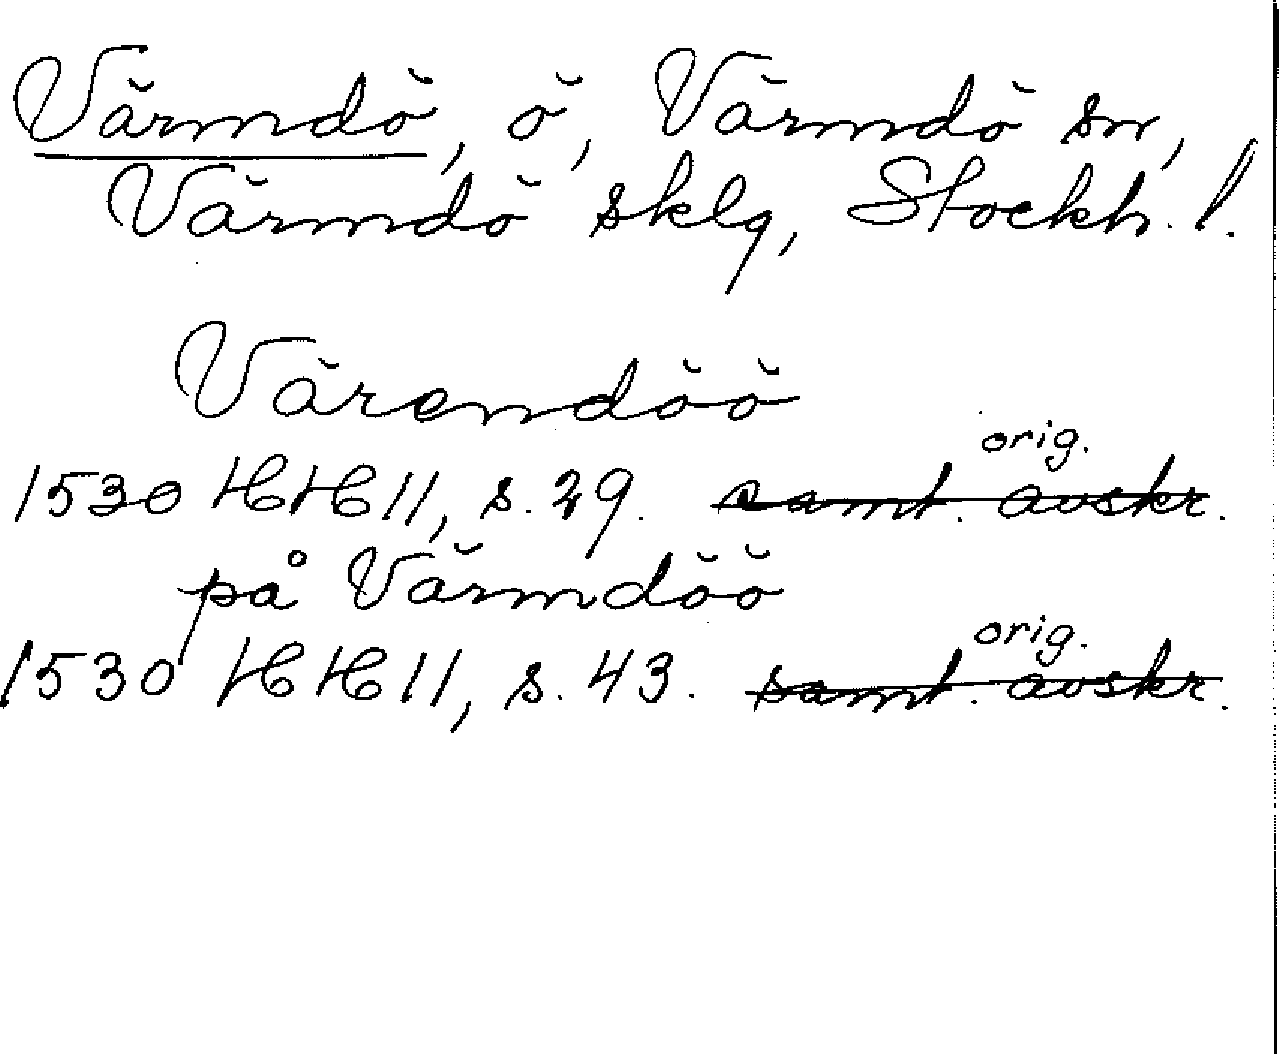 Värmdö, ö, Värmdö sn,
Värmdö sklg, Stockh. l.
Värendöö
orig.
1530 HH 11, s. 29. samt. avskr.
på Värmdöö
orig.
1530 HH 11, s. 43. samt. avskr.